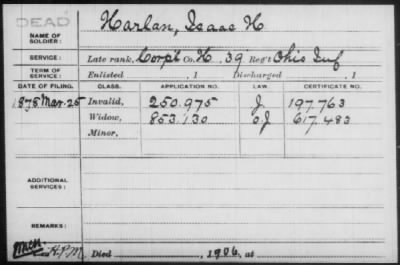 DEAD
Harlan, Isaac H
NAME OF SOLDIER:
SERVICE: Late rank, Corp'l Co. H, 39 Reg't Ohio Inf
TERM OF SERVICE: Enlisted , 1 Discharged , 1
DATE OF FILING. CLASS. APPLICATION NO. LAW. CERTIFICATE NO.
1878 Mar. 25 Invalid, 250.975 J. 197.763
Widow, 853.130 O.J 617.483
Minor,
ADDITIONAL SERVICES:
REMARKS:
H.P.M. Died , 1906, at